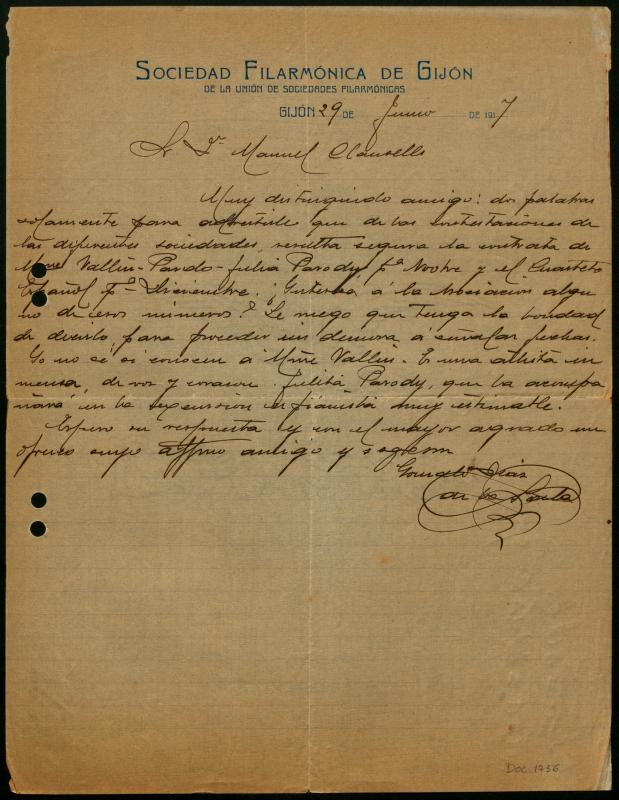 SOCIEDAD FILARMÓNICA DE GIJÓN
DE LA UNIÓN DE SOCIEDADES FILARMÓNICAS
GIJÓN 29 DE Junio DE 1917
Sr Dn Manuel Clausells
Muy distinguido amigo: dos palabras
solamente para advertirle que de las contestaciones de
las diferentes sociedades, resulta segura la contrata de
Mme Vallin-Pardo-Julia Parody, pª Nbre y el Cuarteto
Español pª Diciembre. ¿Interesa á la Asociacion algu
no de esos números? Le ruego que tenga la bondad
de decirlo, para proceder sin demora á señalar fechas.
Yo no sé si conocen á Mme Vallin. Es una artista in
mensa, de voz y corazon. Julita Parody, que la acompa
ñará en la excursion es pianista muy estimable.
Espero su respuesta y con el mayor agrado me
ofrezco suyo affmo amigo y
Gonzalo Diaz
de la
Doc. 1736